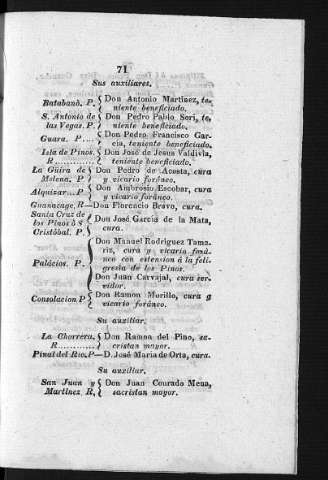 71
Sus auxiliares.
Batabanò. P. { Don Antonio Martinez, teniente beneficiado.
S. Antonio de las Vegas. P. { Don Pedro Pablo Sori, teniente beneficiado.
Guara. P.... { Don Pedro Francisco Garcia, teniente beneficiado.
Isla de Pinos. R............ { Don José de Jesus Valdivia, teniente beneficiado.
La Güira de Melena. P. { Don Pedro de Acosta, cura y vicario foráneo.
Alquizar... P. { Don Ambrosio Escobar, cura y vicario foráneo.
Guanacage. R—Don Florencio Bravo, cura.
Santa Cruz de los Pinos ò S. Cristóbal. P. { Don José Garcia de la Mata, cura.
Palácios. P. { Don Manuel Rodriguez Tamaris, cura y vicario foráneo con estension á la feligresia de los Pinos.
Don Juan Carvajal, cura servidor.
Consolacion P { Don Ramon Morillo, cura y vicario foráneo.
Su auxiliar.
La Chorrera. R............ { Don Ramon del Pino, sacristan mayor.
Pinal del Rio. P—D. José Maria de Orta, cura.
Su auxiliar.
San Juan y Martinez. R, { Don Juan Conrado Mena, sacristan mayor.